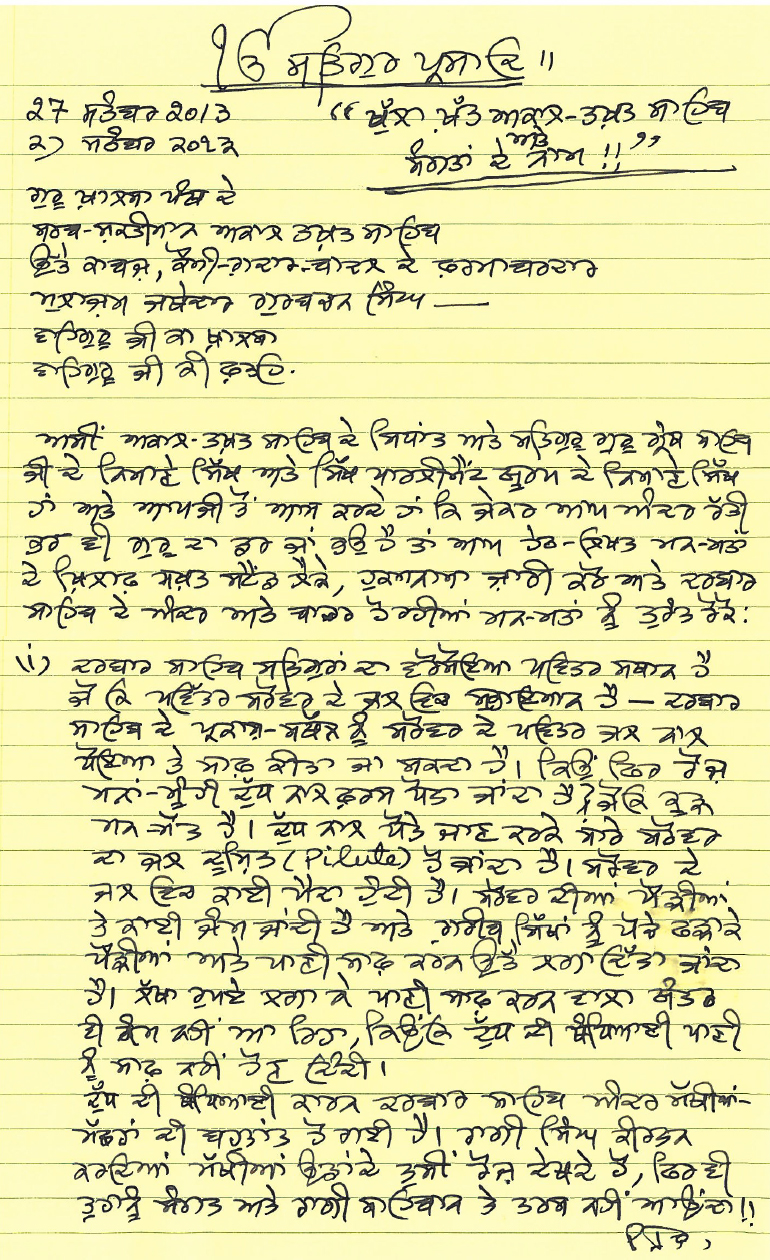 ੴ ਸਤਿਗੁਰ ਪ੍ਰਸਾਦਿ ॥
27 ਸਤੰਬਰ 2013
੨੭ ਸਤੰਬਰ ੨੦੧੩
“ ਖੁੱਲਾ ਖ਼ੱਤ ਅਕਾਲ-ਤਖ਼ਤ ਸਾਹਿਬ ਅਤੇ
ਸੰਗਤਾਂ ਦੇ ਨਾਮ !! ”
ਗੁਰੂ ਖ਼ਾਲਸਾ ਪੰਥ ਦੇ
ਸਰਬ-ਸ਼ਕਤੀਮਾਨ ਅਕਾਲ ਤਖ਼ਤ ਸਾਹਿਬ
ਉੱਤੇ ਕਾਬਜ਼, ਕੌਮੀ-ਗ਼ਦਾਰ-ਬਾਦਲ ਦੇ ਫ਼ਰਮਾਬਰਦਾਰ
ਮੁਲਾਜ਼ਮ ਜਥੇਦਾਰ ਗੁਰਬਚਨ ਸਿੰਘ —
ਵਾਹਿਗੁਰੂ ਜੀ ਕਾ ਖ਼ਾਲਸਾ
ਵਾਹਿਗੁਰੂ ਜੀ ਕੀ ਫ਼ਤਹਿ.
ਅਸੀਂ ਅਕਾਲ-ਤਖ਼ਤ ਸਾਹਿਬ ਦੇ ਸਿਧਾਂਤ ਅਤੇ ਸਤਿਗੁਰੂ ਗੁਰੂ ਗ੍ਰੰਥ ਸਾਹਿਬ
ਜੀ ਦੇ ਨਿਮਾਣੇ ਸਿੱਖ ਅਤੇ ਸਿੱਖ ਪਾਰਲੀਮੈਂਟ ਫ਼ੋਰਮ ਦੇ ਨਿਮਾਣੇ ਸਿੱਖ
ਹਾਂ ਅਤੇ ਆਪਜੀ ਤੋਂ ਆਸ ਕਰਦੇ ਹਾਂ ਕਿ ਜੇਕਰ ਆਪ ਅੰਦਰ ਰੱਤੀ
ਭਰ ਵੀ ਗੁਰੂ ਦਾ ਡਰ ਜਾਂ ਭਉ ਹੈ ਤਾਂ ਆਪ ਹੇਠ-ਲਿਖਤ ਮਨ-ਮਤਾਂ
ਦੇ ਖ਼ਿਲਾਫ਼ ਸਖ਼ਤ ਸਟੈਂਡ ਲੈਕੇ, ਹੁਕਮਨਾਮਾ ਜ਼ਾਰੀ ਕਰੋ ਅਤੇ ਦਰਬਾਰ
ਸਾਹਿਬ ਦੇ ਅੰਦਰ ਅਤੇ ਬਾਹਰ ਹੋ ਰਹੀਆਂ ਮਨ-ਮਤਾਂ ਨੂੰ ਤੁਰੰਤ ਰੋਕੋ:
(i) ਦਰਬਾਰ ਸਾਹਿਬ ਸਤਿਗੁਰਾਂ ਦਾ ਵਰੋਸੋਇਆ ਪਵਿੱਤਰ ਸਥਾਨ ਹੈ
ਜੋ ਕਿ ਪਵਿੱਤਰ ਸਰੋਵਰ ਦੇ ਜਲ ਵਿਚ ਸੁਭਾਇਮਾਨ ਹੈ — ਦਰਬਾਰ
ਸਾਹਿਬ ਦੇ ਪ੍ਰਕਾਸ਼-ਅਸਥਾਨ ਨੂੰ ਸਰੋਵਰ ਦੇ ਪਵਿੱਤਰ ਜਲ ਨਾਲ
ਧੋਇਆ ਤੇ ਸਾਫ਼ ਕੀਤਾ ਜਾ ਸਕਦਾ ਹੈ। ਕਿਉਂ ਫਿਰ ਰੋਜ਼
ਮਣਾਂ-ਮੂੰਹੀ ਦੁੱਧ ਨਾਲ ਫ਼ਰਸ਼ ਧੋਤਾ ਜਾਂਦਾ ਹੈ? ਜੋਕਿ ਇਕ
ਮਨ-ਮੱਤ ਹੈ। ਦੁੱਧ ਨਾਲ ਧੋਤੇ ਜਾਣ ਕਰਕੇ ਸਾਰੇ ਸਰੋਵਰ
ਦਾ ਜਲ ਦੂਸ਼ਿਤ (Pilute) ਹੋ ਜਾਂਦਾ ਹੈ। ਸਰੋਵਰ ਦੇ
ਜਲ ਵਿਚ ਕਾਈ ਪੈਦਾ ਹੁੰਦੀ ਹੈ। ਸਰੋਵਰ ਦੀਆਂ ਪੌੜੀਆਂ
ਤੇ ਕਾਈ ਜੰਮ ਜਾਂਦੀ ਹੈ ਅਤੇ ਗਰੀਬ ਸਿੱਖਾਂ ਨੂੰ ਧੋਖੇ ਫੜਾਕੇ
ਪੌੜੀਆਂ ਅਤੇ ਪਾਣੀ ਸਾਫ਼ ਕਰਨ ਉੱਤੇ ਲਗਾ ਦਿੱਤਾ ਜਾਂਦਾ
ਹੈ। ਲੱਖਾਂ ਰੁਪਏ ਲਗਾ ਕੇ ਪਾਣੀ ਸਾਫ਼ ਕਰਨ ਵਾਲਾ ਯੰਤਰ
ਵੀ ਕੰਮ ਨਹੀਂ ਆ ਰਿਹਾ, ਕਿਉਂਕਿ ਦੁੱਧ ਦੀ ਥੰਧਿਆਈ ਪਾਣੀ
ਨੂੰ ਸਾਫ਼ ਨਹੀਂ ਹੋਣ ਦਿੰਦੀ।
ਦੁੱਧ ਦੀ ਥੰਧਿਆਈ ਕਾਰਨ ਦਰਬਾਰ ਸਾਹਿਬ ਅੰਦਰ ਮੱਖੀਆਂ-
ਮੱਛਰਾਂ ਦੀ ਬਹੁਤਾਂਤ ਹੋ ਗਈ ਹੈ। ਰਾਗੀ ਸਿੰਘ ਕੀਰਤਨ
ਕਰਦਿਆਂ ਮੱਖੀਆਂ ਉਡਾਂਦੇ ਤੁਸੀਂ ਰੋਜ਼ ਦੇਖਦੇ ਹੋ, ਫਿਰ ਵੀ
ਤੁਹਾਨੂੰ ਸੰਗਤ ਅਤੇ ਰਾਗੀ ਸਾਹਿਬਾਨ ਤੇ ਤਰਸ ਨਹੀਂ ਆਉਂਦਾ!!